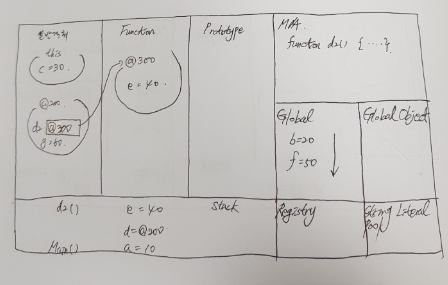 일반객체
this
c=30.
@200.
d2 @300
g=60.
Function
@300
e=40.
Prototype
MAA
function d2() { ..... }.
Global
b=20
f=50
Global Object
d2()
e=40
d=@200
Main()
a=10
Stack
Registry
String Literal
Pool